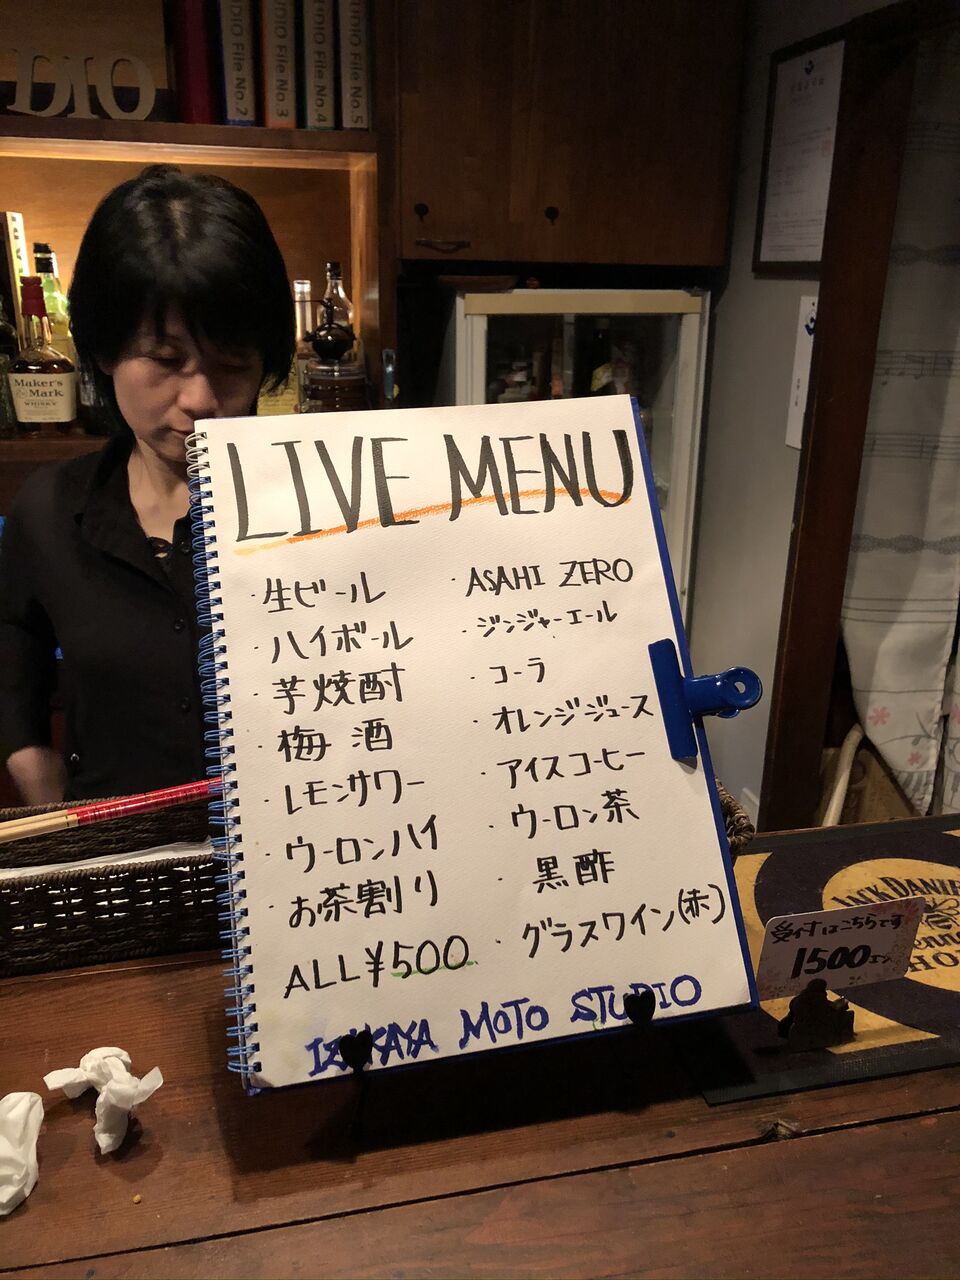 DIO
UDIO File No.2
UDIO File No.3
UDIO File No.4
UDIO File No.5
Maker's
Mark
WHISKY
LIVE MENU
・生ビール
・ハイボール
・芋焼酎
・梅酒
・レモンサワー
・ウーロンハイ
・お茶割り
ALL ¥500
・ASAHI ZERO
・ジンジャーエール
・コーラ
・オレンジジュース
・アイスコーヒー
・ウーロン茶
・黒酢
・グラスワイン(赤)
IZAKAYA MOTO STUDIO
JACK DANIEL
受付はこちらです
1500エン